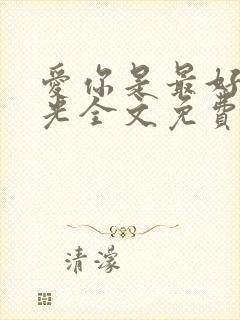 爱你是最好
光全文免费
清濛